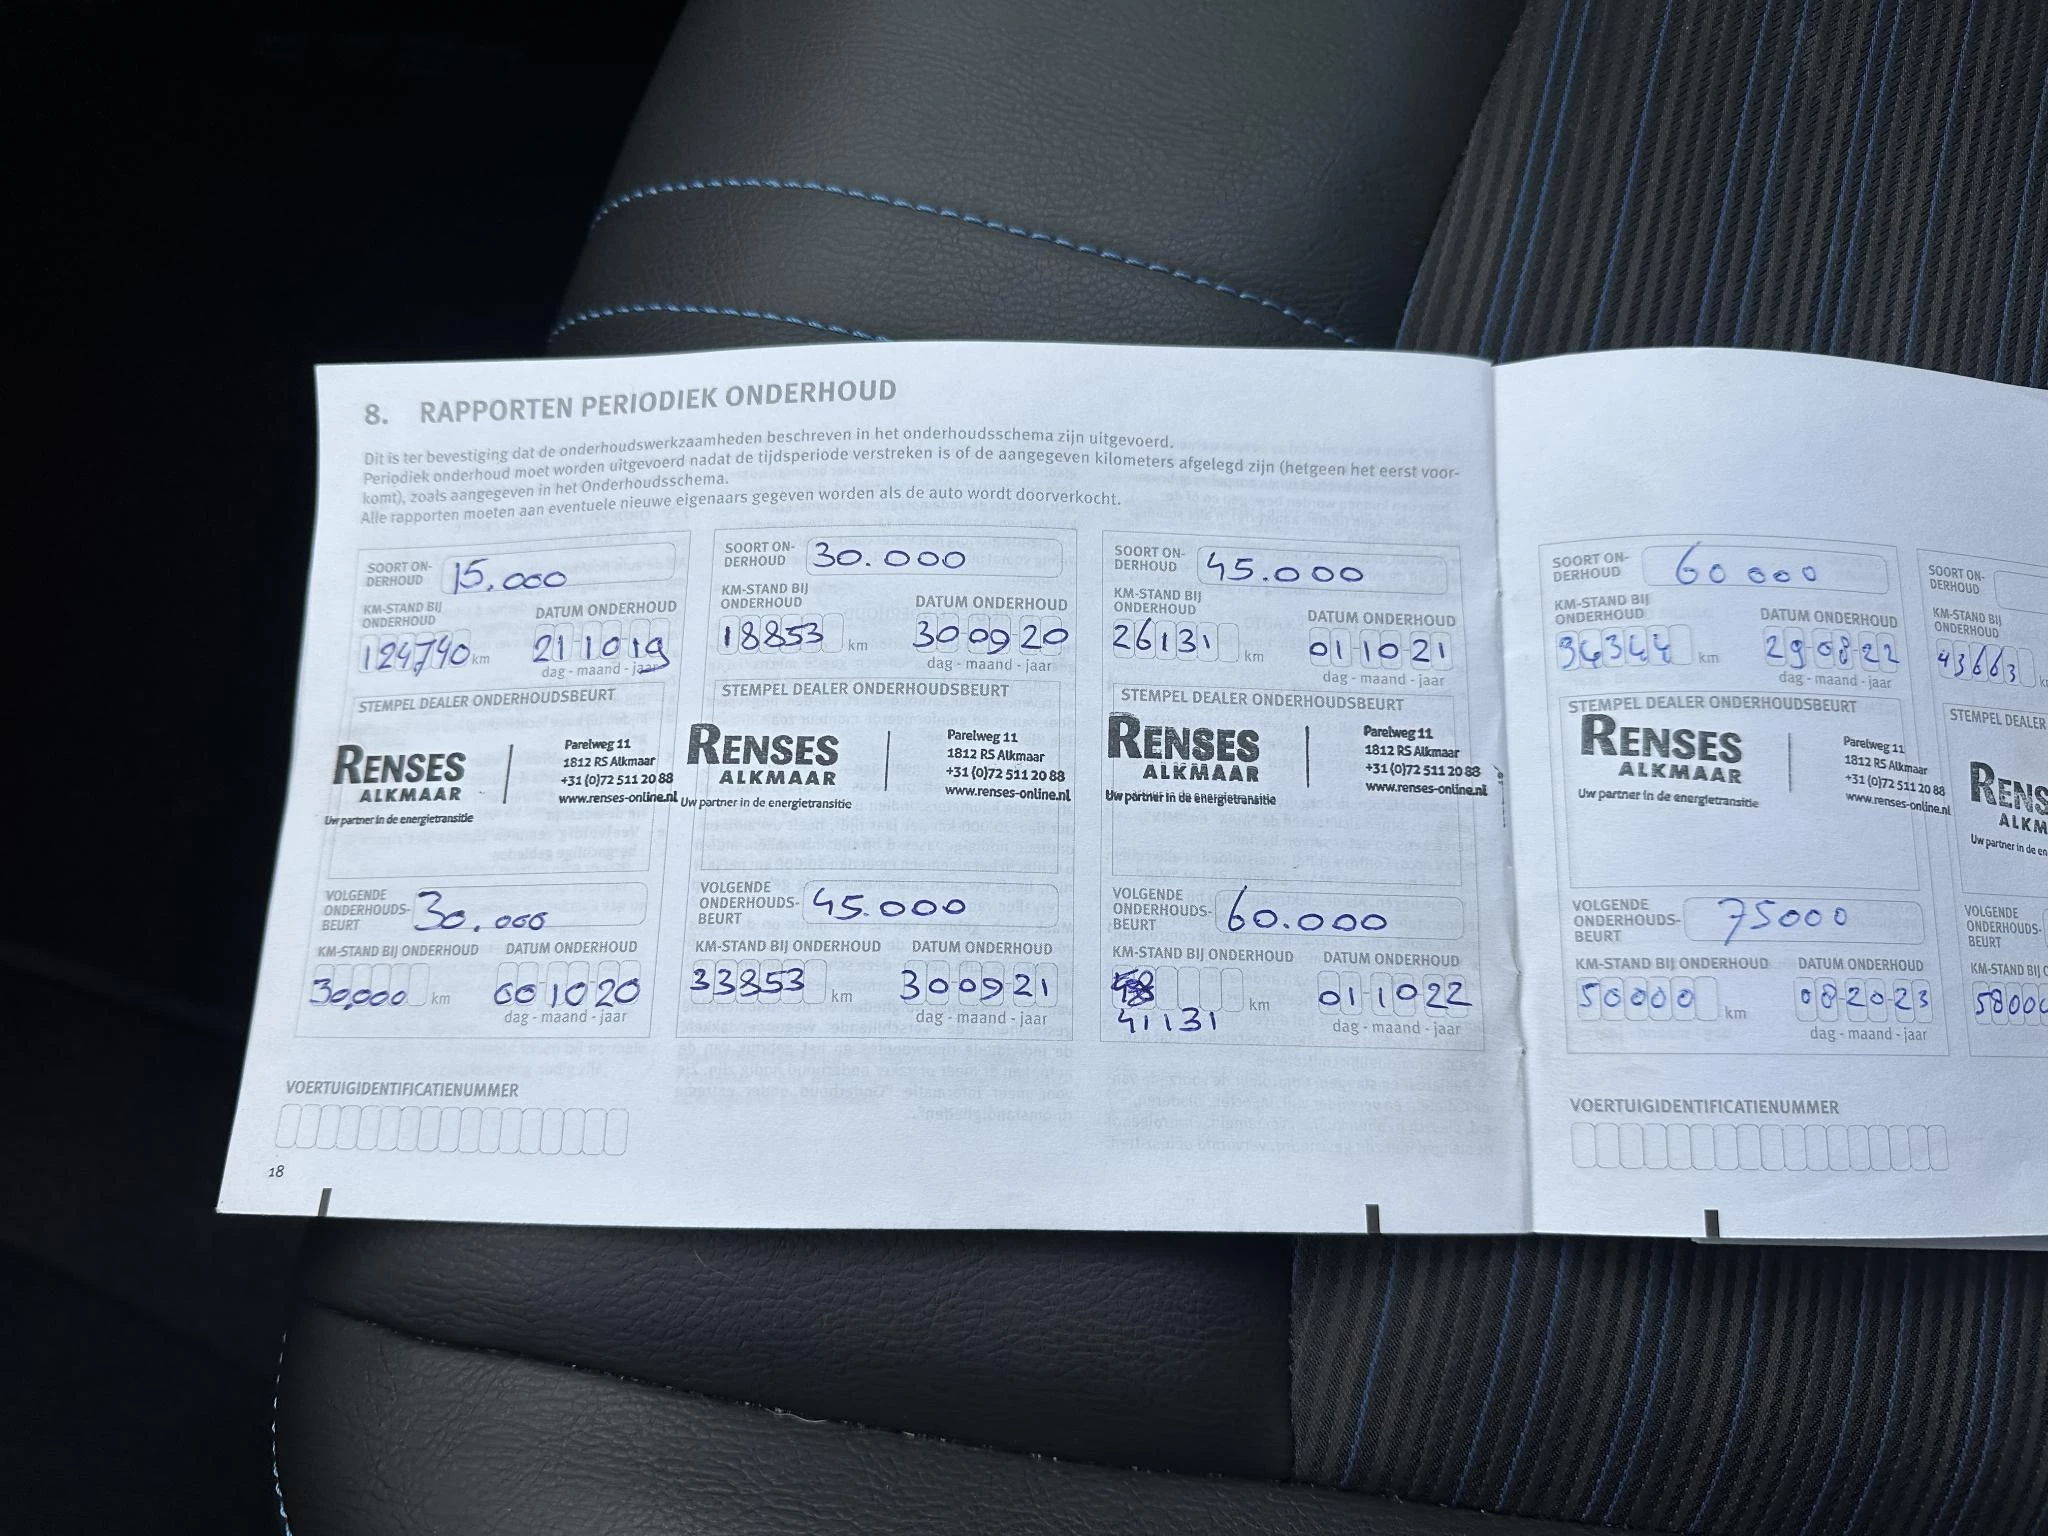 8. RAPPORTEN PERIODIEK ONDERHOUD
Dit is ter bevestiging dat de onderhoudswerkzaamheden beschreven in het onderhoudsschema zijn uitgevoerd.
Periodiek onderhoud moet worden uitgevoerd nadat de tijdsperiode verstreken is of de aangegeven kilometers afgelegd zijn (hetgeen het eerst voor-
komt), zoals aangegeven in het Onderhoudsschema.
Alle rapporten moeten aan eventuele nieuwe eigenaars gegeven worden als de auto wordt doorverkocht.
SOORT ON-
DERHOUD 15.000
KM-STAND BIJ
ONDERHOUD
124740 km
DATUM ONDERHOUD
21 10 19
dag - maand - jaar
STEMPEL DEALER ONDERHOUDSBEURT
RENSES
ALKMAAR
Uw partner in de energietransitie
Parelweg 11
1812 RS Alkmaar
+31 (0)72 511 20 88
www.renses-online.nl
VOLGENDE
ONDERHOUDS-
BEURT 30.000
KM-STAND BIJ ONDERHOUD
30,000 km
DATUM ONDERHOUD
00 10 20
dag - maand - jaar
SOORT ON-
DERHOUD 30.000
KM-STAND BIJ
ONDERHOUD
18853 km
DATUM ONDERHOUD
30 09 20
dag - maand - jaar
STEMPEL DEALER ONDERHOUDSBEURT
RENSES
ALKMAAR
Uw partner in de energietransitie
Parelweg 11
1812 RS Alkmaar
+31 (0)72 511 20 88
www.renses-online.nl
VOLGENDE
ONDERHOUDS-
BEURT 45.000
KM-STAND BIJ ONDERHOUD
33853 km
DATUM ONDERHOUD
30 09 21
dag - maand - jaar
SOORT ON-
DERHOUD 45.000
KM-STAND BIJ
ONDERHOUD
26131 km
DATUM ONDERHOUD
01 10 21
dag - maand - jaar
STEMPEL DEALER ONDERHOUDSBEURT
RENSES
ALKMAAR
Uw partner in de energietransitie
Parelweg 11
1812 RS Alkmaar
+31 (0)72 511 20 88
www.renses-online.nl
VOLGENDE
ONDERHOUDS-
BEURT 60.000
KM-STAND BIJ ONDERHOUD
km
41131
DATUM ONDERHOUD
01 10 22
dag - maand - jaar
VOERTUIGIDENTIFICATIENUMMER
18
SOORT ON-
DERHOUD 60 000
KM-STAND BIJ
ONDERHOUD
34344 km
DATUM ONDERHOUD
29 08 22
dag - maand - jaar
STEMPEL DEALER ONDERHOUDSBEURT
RENSES
ALKMAAR
Uw partner in de energietransitie
Parelweg 11
1812 RS Alkmaar
+31 (0)72 511 20 88
www.renses-online.nl
VOLGENDE
ONDERHOUDS-
BEURT 75000
KM-STAND BIJ ONDERHOUD
50000 km
DATUM ONDERHOUD
08 20 23
dag - maand - jaar
VOERTUIGIDENTIFICATIENUMMER
SOORT ON-
DERHOUD
KM-STAND BIJ
ONDERHOUD
43663
STEMPEL DEALER
RENS
ALKM
Uw partner in de en
VOLGENDE
ONDERHOUDS-
BEURT
KM-STAND BIJ
5800